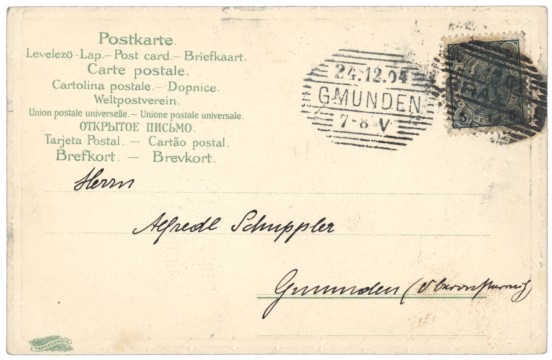 Postkarte.
Levelező-Lap.— Post card.— Briefkaart.
Carte postale.
Cartolina postale.— Dopnice.
Weltpostverein.
Union postale universelle.— Unione postale universale.
ОТКРЫТОЕ ПИСЬМО.
Tarjeta Postal. — Cartão postal.
Brefkort. — Brevkort.
24.12.04
GMUNDEN
7-8 V
Herrn
Alfred Schuppler
Gmunden (Oberösterreich)